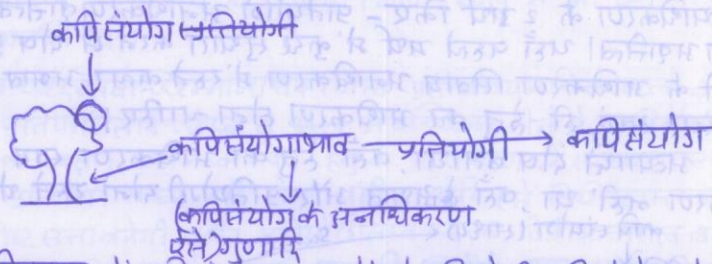 कपिसंयोग प्रतियोगी
कपिसंयोगाभाव प्रतियोगी कपिसंयोग
(कपिसंयोग के अनधिकरण
ऐसे) गुणादि